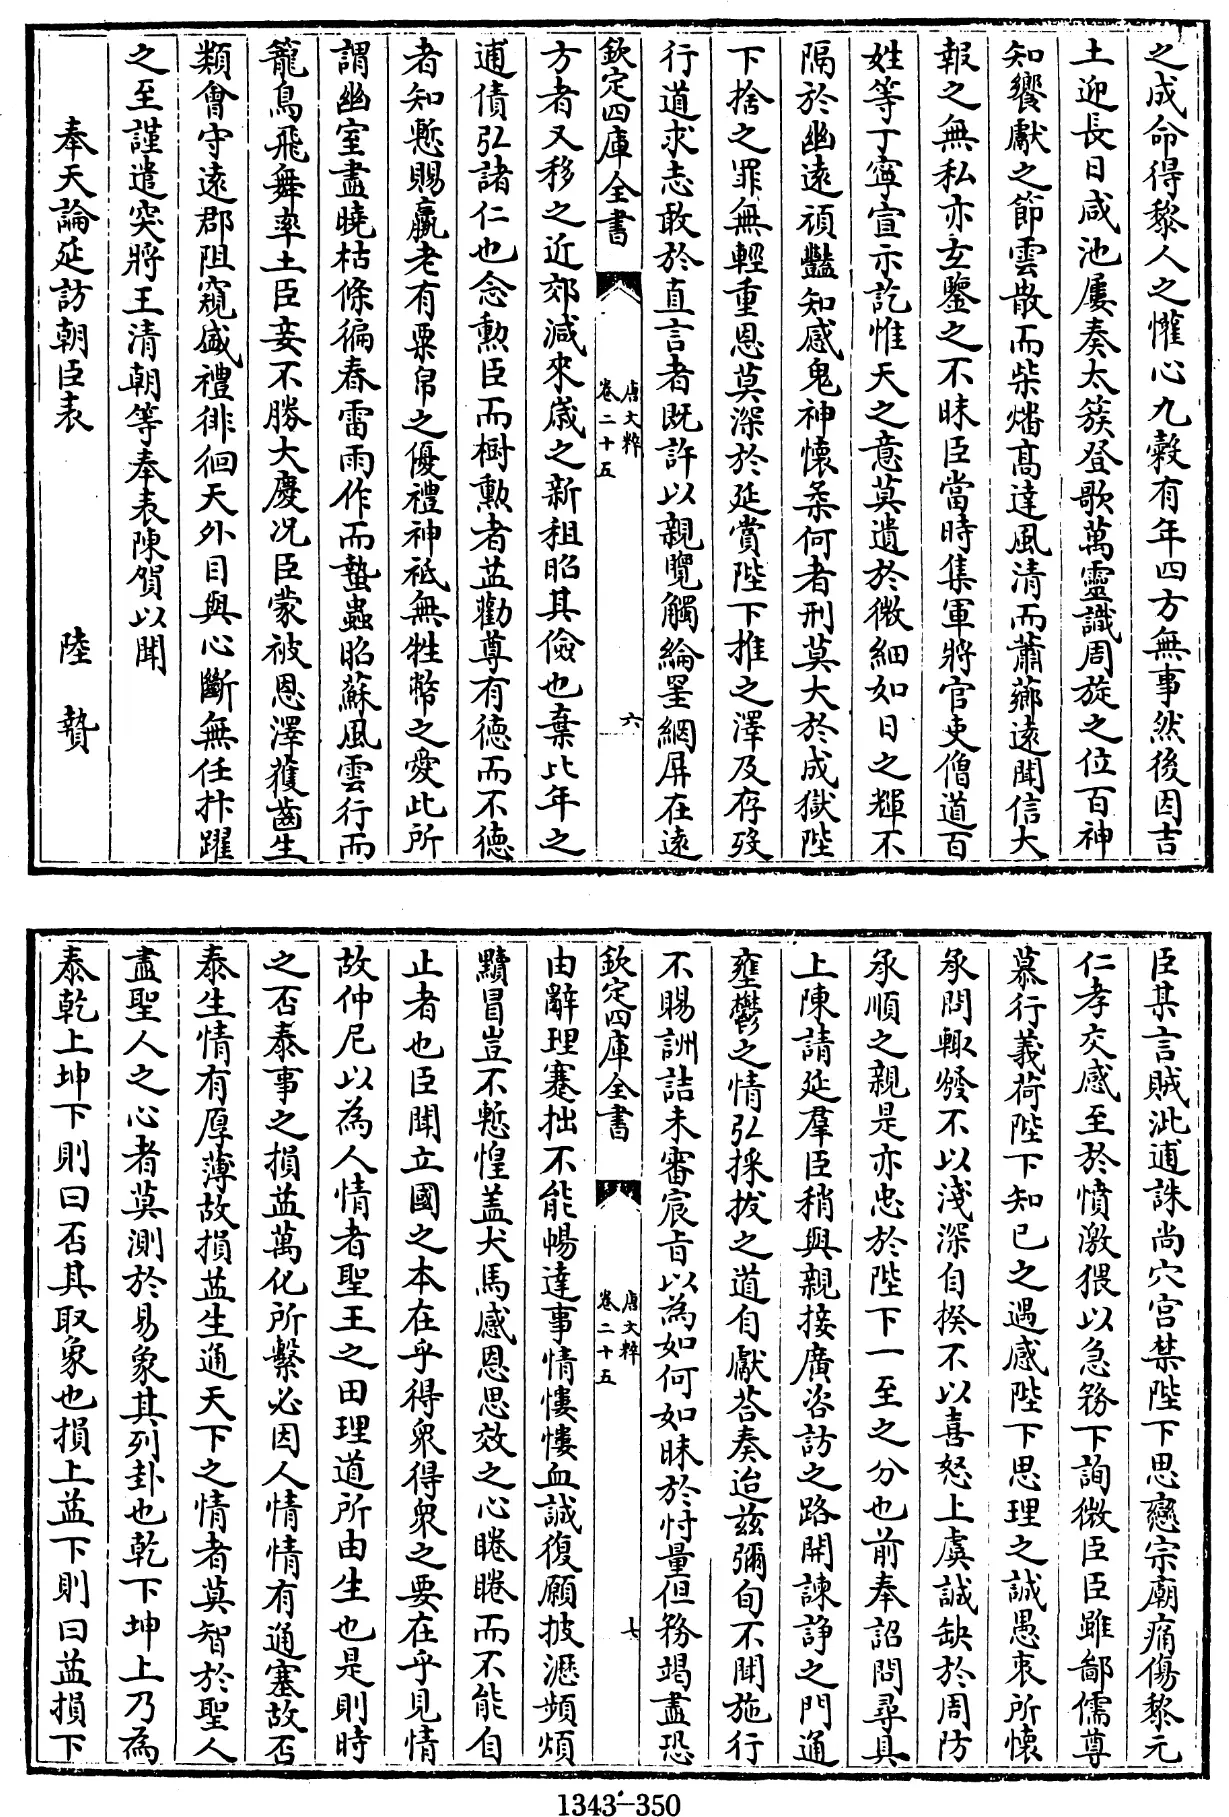 之成命得黎人之懽心九穀有年四方無事然後因吉
土迎長日咸池屢奏太簇登歌萬靈識周旋之位百神
知饗獻之節雲散而柴燔髙達風清而蕭薌遠聞信大
報之無私亦玄鑒之不昧臣當時集軍將官吏僧道百
姓等丁寧宣示訖惟天之意莫遺於微細如日之輝不
隔於幽遠頑豔知感鬼神懐柔何者刑莫大於成獄陛
下捨之罪無輕重恩莫深於延賞陛下推之澤及存歿
行道求志敢於直言者既許以親覽觸綸罣網屏在遠
欽定四庫全書
唐文粹
卷二十五
六
方者又移之近郊減來歳之新租昭其儉也棄比年之
逋債弘諸仁也念勲臣而樹勲者益勸尊有徳而不徳
者知慙賜羸老有粟帛之優禮神祗無牲幣之愛此所
謂幽室盡曉枯條徧春雷雨作而蟄蟲昭蘇風雲行而
籠鳥飛舞率土臣妾不勝大慶况臣蒙被恩澤獲齒生
類會守遠郡阻窺盛禮徘徊天外目與心斷無任抃躍
之至謹遣突將王清朝等奉表陳賀以聞
奉天論延訪朝臣表
陸贄
臣某言賊泚逋誅尚穴宫禁陛下思戀宗廟痛傷黎元
仁孝交感至於憤激猥以急務下詢微臣臣雖鄙儒尊
慕行義荷陛下知已之遇感陛下思理之誠愚衷所懐
承問輒發不以淺深自揆不以喜怒上虞誠缺於周防
承順之親是亦忠於陛下一至之分也前奉詔問尋具
上陳請延羣臣稍與親接廣咨訪之路開諫諍之門通
壅鬱之情弘採拔之道自獻荅奏迨兹彌旬不聞施行
不賜詶詰未審宸㫖以為如何如昧於忖量但務竭盡恐
欽定四庫全書
唐文粹
卷二十五
七
由辭理蹇拙不能暢達事情慺慺血誠復願披瀝頻煩
黷冒豈不慙惶盖犬馬感恩思效之心睠睠而不能自
止者也臣聞立國之本在乎得衆得衆之要在乎見情
故仲尼以為人情者聖王之田理道所由生也是則時
之否泰事之損益萬化所繫必因人情情有通塞故否
泰生情有厚薄故損益生通天下之情者莫智於聖人
盡聖人之心者莫測於易象其列卦也乾下坤上乃為
泰乾上坤下則曰否其取象也損上益下則曰益損下
1343-350